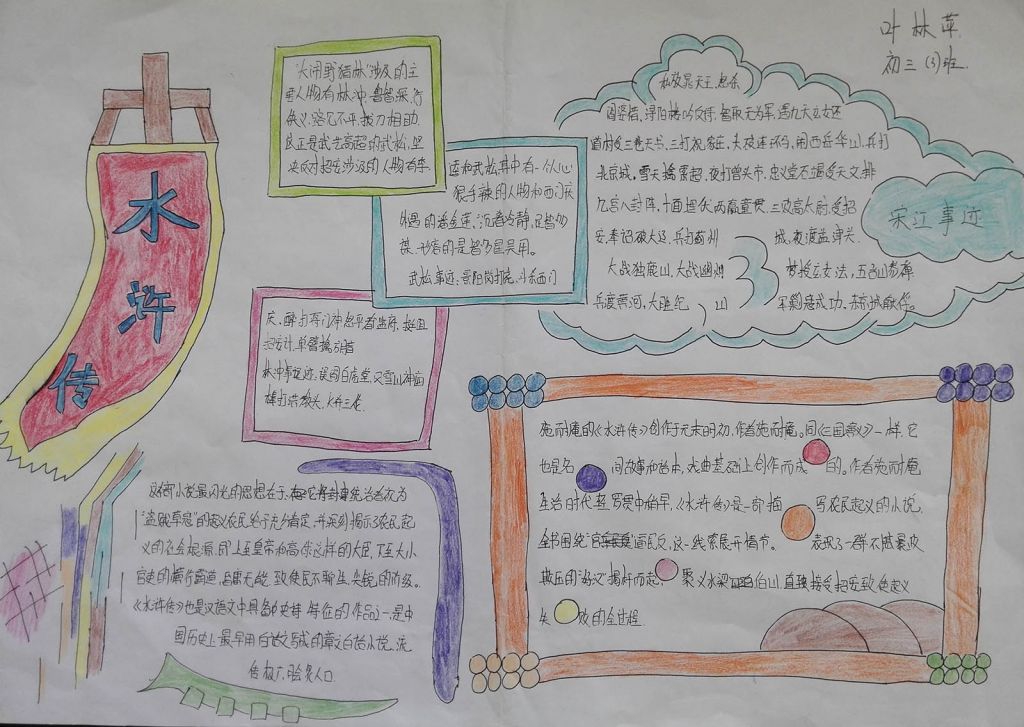 叶林萍
初三(3)班
水浒传
"大闹野猪林"涉及的主
要人物有林冲、鲁智深、行
侠义,路见不平拔刀相助,
反正是武艺高超的武松,坚
决反对招安涉及的人物有李
逵和武松,其中有一个心
狠手辣的人物和西门庆
偶遇的潘金莲,沉着冷静,足智多
谋,形容的是智多星吴用。
武松事迹:景阳岗打虎、斗杀西门
庆、醉打蒋门神
林冲事迹:误闯白虎堂、
棒打洪教头
私放晁天王,怒杀
阎婆惜,浔阳楼吟反诗,智取无为军,遇九天玄女还
道村受三卷天书,三打祝家庄,大破连环马,闹西岳华山,兵打
北京城,雪天擒索超,夜打曾头市,忠义堂石碣受天文,排
九宫八卦阵,十面埋伏两赢童贯,三败高太尉受招
安,奉诏破大辽,兵打蓟州城,夜渡益津关,
大战独鹿山,大战幽州
兵渡黄河
宋江事迹
施耐庵的《水浒传》创作于元末明初,作者施耐庵。同《三国演义》一样,它
也是名间故事和话本、戏曲基础上创作而成的。作者施耐庵
生活时代至罗贯中稍早,《水浒传》是一部描写农民起义的小说,
全书围绕"官逼民反"这一线索展开情节。表现了一群不堪暴政
欺压的好汉揭竿而起,聚义水梁泊山,直致接受招安致使起义
失败的全过程.
最闪光的思想在于
"盗贼草寇"的起义农民给予充分肯定,并深刻揭示了农民起
义的社会根源,即上至皇帝和高俅这样的大臣,下至大小
官吏的横行霸道,昏庸无能,致使民不聊生
《水浒传》也是汉语文中具备史诗特征的作品之一,是中
国历史上最早用白话文写成的章义白话小说,流
传极广,脍炙人口.